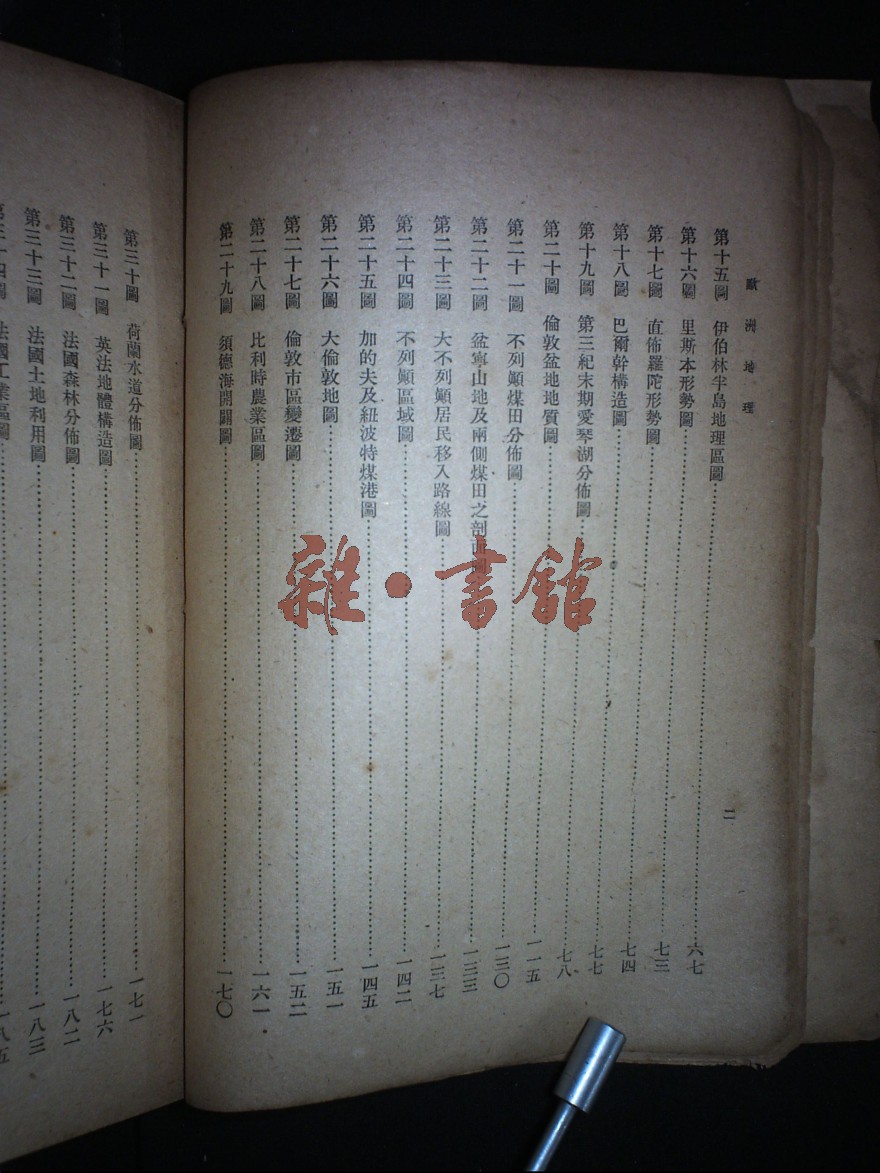 歐洲地理
二
第十五圖 伊伯林半島地理區圖……六七
第十六圖 里斯本形勢圖……七三
第十七圖 直佈羅陀形勢圖……七四
第十八圖 巴爾幹構造圖……七七
第十九圖 第三紀末期愛琴湖分佈圖……七八
第二十圖 倫敦盆地地質圖……一一五
第二十一圖 不列顛煤田分佈圖……一三〇
第二十二圖 盆寧山地及兩側煤田之剖面圖……一三三
第二十三圖 大不列顛居民移入路線圖……一三七
第二十四圖 不列顛區域圖……一四二
第二十五圖 加的夫及紐波特煤港圖……一四五
第二十六圖 大倫敦地圖……一五一
第二十七圖 倫敦市區變遷圖……一五二
第二十八圖 比利時農業區圖……一六一
第二十九圖 須德海開闢圖……一七〇
第三十圖 荷蘭水道分佈圖……一七一
第三十一圖 英法地體構造圖……一七六
第三十二圖 法國森林分佈圖……一八二
第三十三圖 法國土地利用圖……一八三
第三十四圖 法國工業區圖……一八五
雜·書館